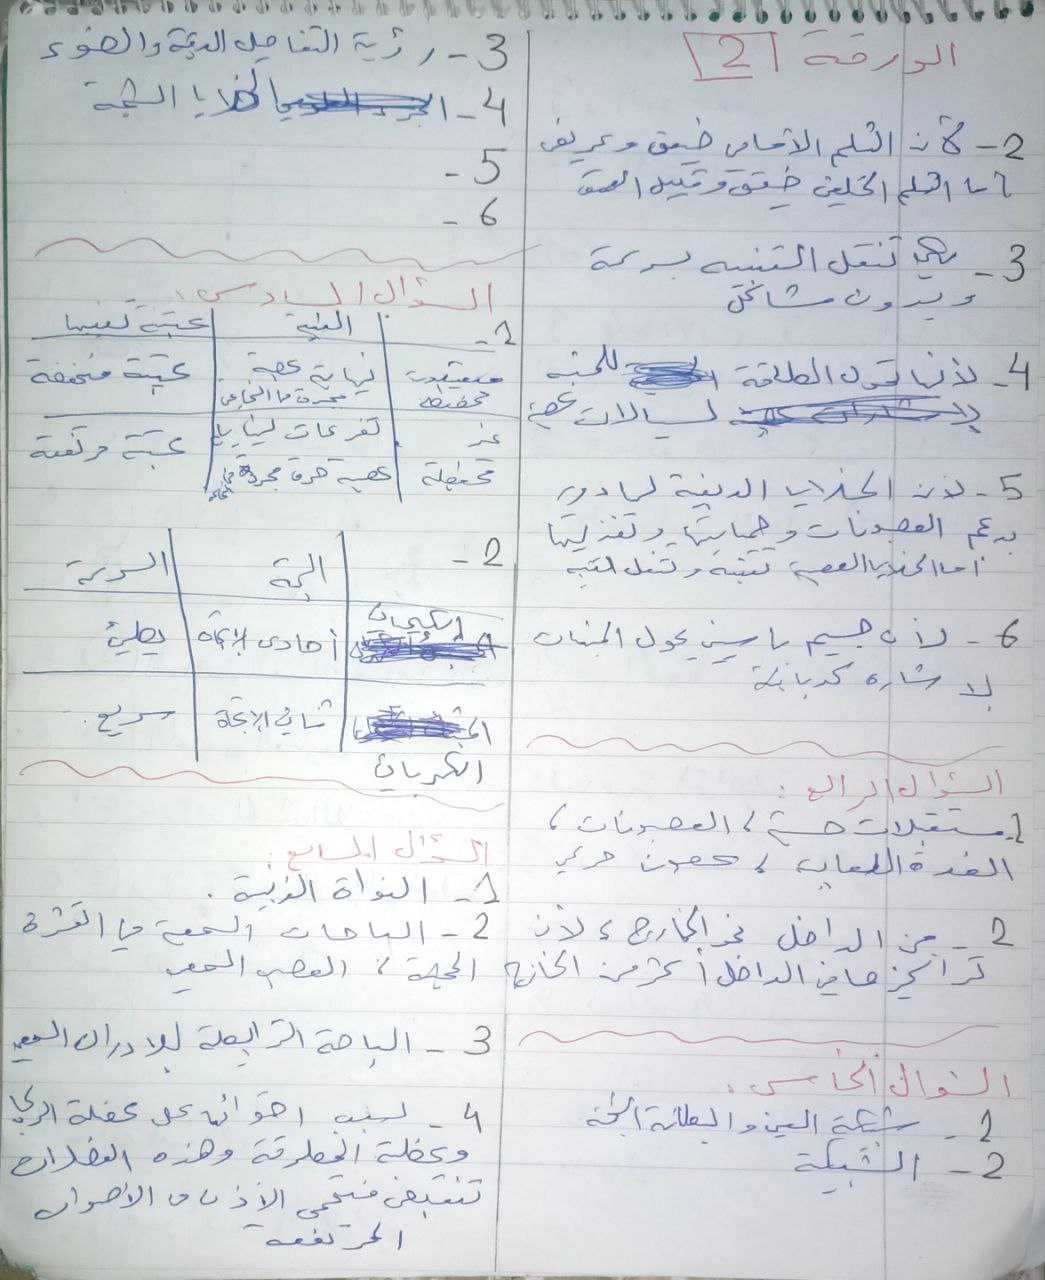 الورقة 2
2- لأن الثلم الأمامي ضيق وعريض
أما الثلم الخلفي ضيق وقليل العمق
3- هي تنقل التنبيه بسرعة
وبدون تناقص
4- لأنها تحول الطاقة للمنبه
لسيالات عصبية
5- لأن الخلايا الدبقية لها دور
بدعم العصبونات وحمايتها وتغذيتها
أما الخلايا العصبية تتنبه وتنقل التنبيه
6- لأن جسيم باسيني يحول المنبهات
لإشارة كهربائية
السؤال الرابع :
1- مستقبلات حسية ، العصبونات ،
الغدة اللعابية ، عصبون حركي
2- من الداخل نحو الخارج ، لأن
تراكيزها في الداخل أكثر من الخارج
السؤال الخامس :
1- شبكية العين والبطانة الشمية
2- الشبكية
3- رؤية التفاصيل الدقيقة والضوء
4- الخلايا الشمية
5-
6-
السؤال السادس :
1-
البنية | عتبة تنبيهها
محفظة | نهاية عصبية مجردة من النخاعين | عتبة منخفضة
غير محفظة | تفرعات لنهايات عصبية حرة مجردة من | عتبة مرتفعة
2-
الجهة | السرعة
الكيميائي | أحادي الاتجاه | بطيء
الكهربائي | ثنائي الاتجاه | سريع
السؤال السابع :
1- النواة الذنبية .
2- الباحات السمعية في القشرة
المخية ، العصب السمعي
3- الباحة الترابطية للإدراك السمعي
4- بسبب احتوائها على عضلة الركابية
وعضلة المطرقة وهذه العضلات
تنقبض فتحمي الأذن من الأصوات
المرتفعة